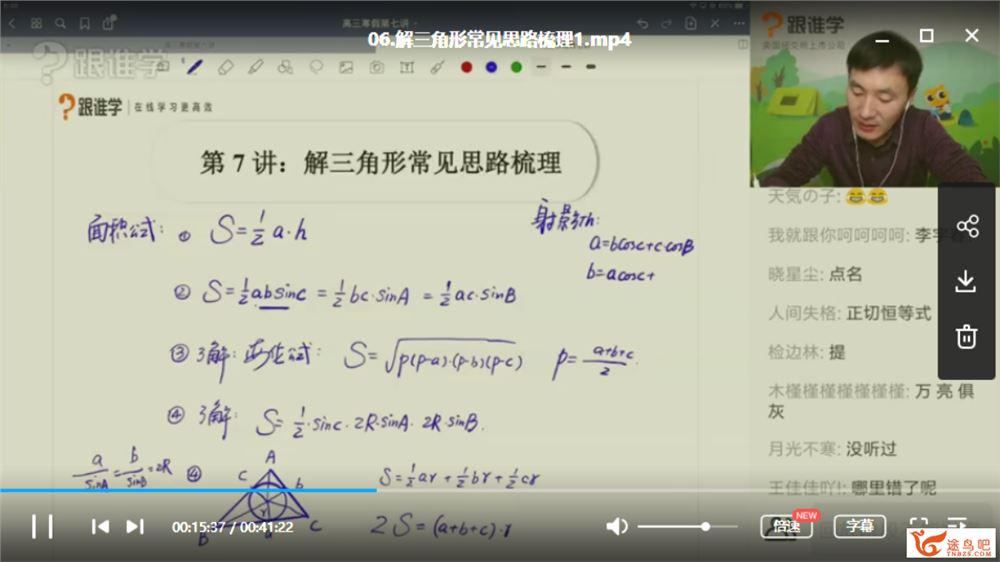 高三寒假第七讲
06.解三角形常见思路梳理1.mp4
跟谁学
跟谁学
美国纽交所上市公司
跟谁学 | 在线学习更高效
第 7 讲：解三角形常见思路梳理
面积公式：① S=½a·h
射影
a=bcosc+c·cosB
b=acosc+
② S=½absinc = ½bc·sinA = ½ac·sinB
③ 了解：海伦公式： S=√p(p-a)·(p-b)(p-c) p=(a+b+c)/2
④ 了解： S=½·sinc·2R·sinA·2R·sinB.
a/sinA=b/sinB=2R ④
A
c b
r
B a C
S=½ar+½br+½cr
2S=(a+b+c)·r
天気の子: 😂😂
我就跟你呵呵呵呵: 李宇春
晓星尘: 点名
人间失格: 正切恒等式
检边林: 提
木槿槿槿槿槿槿槿: 万 亮 俱
灰
月光不寒: 没听过
王佳佳吖!: 哪里错了呢
00:15:37 / 00:41:22
倍速
NEW
字幕
途鸟吧
TNBZS.COM